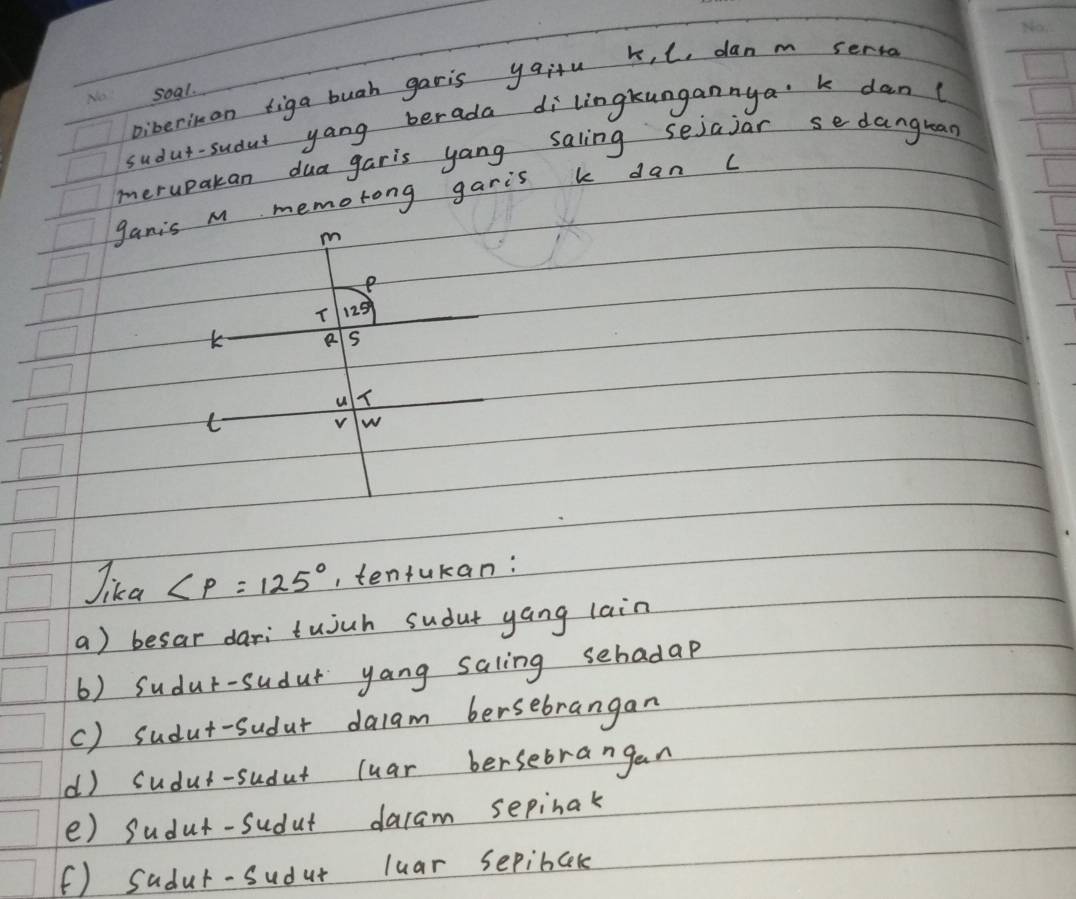 No
No.
soal.
Diberikan tiga buah garis yaitu k, l, dan m serta
sudut-sudut yang berada di lingkungannya. k dan l
merupakan dua garis yang saling sejajar sedangkan
garis M memotong garis k dan l
m
P
T 125°
k
R S
U T
l
V W
Jika <P = 125°, tentukan:
a) besar dari tujuh sudut yang lain
b) sudut-sudut yang saling sehadap
c) sudut-sudut dalam bersebrangan
d) sudut-sudut luar bersebrangan
e) sudut-sudut dalam sepihak
f) sudut-sudut luar sepihak